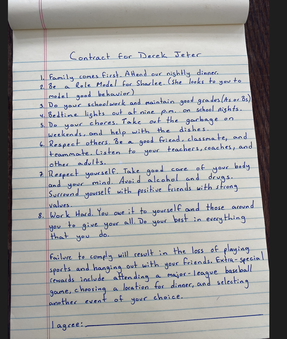 Contract for Derek Jeter
1. Family comes first. Attend our nightly dinner.
2. Be a Role Model for Sharlee. (She looks to you to
model good behavior)
3. Do your schoolwork and maintain good grades (As or Bs)
4. Bedtime lights out at nine p.m. on school nights.
5. Do your chores. Take out the garbage on
weekends, and help with the dishes.
6. Respect others. Be a good friend, classmate, and
teammate. Listen to your teachers, coaches, and
other adults.
7. Respect yourself. Take good care of your body
and your mind. Avoid alcohol and drugs.
Surround yourself with positive friends with strong
values.
8. Work Hard. You owe it to yourself and those around
you to give your all. Do your best in everything
that you do.
Failure to comply will result in the loss of playing
sports and hanging out with your friends. Extra-special
rewards include attending a major-league baseball
game, choosing a location for dinner, and selecting
another event of your choice.
I agree: